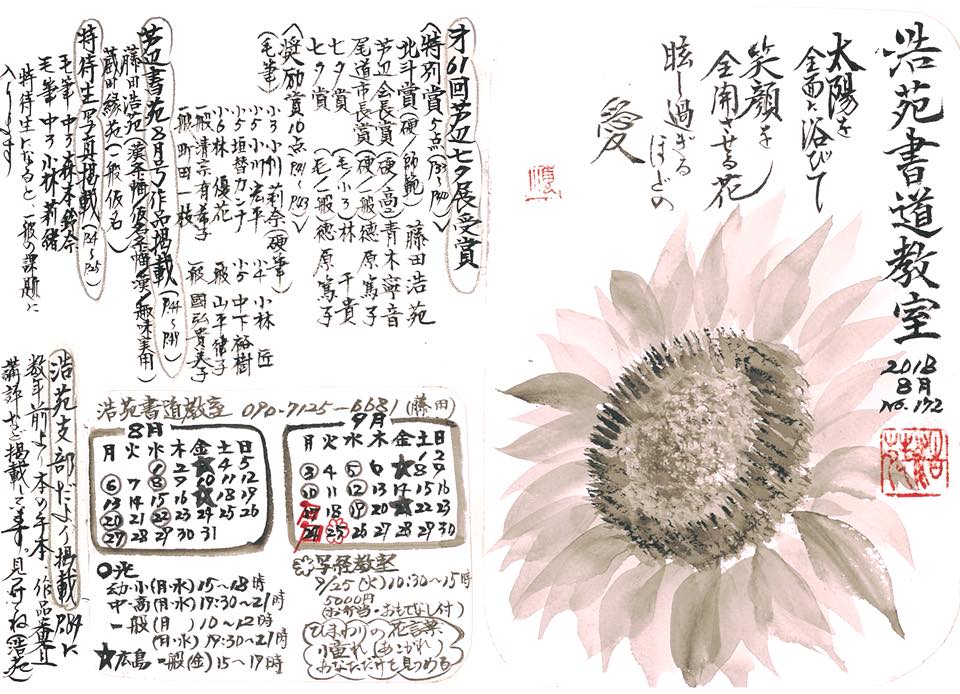 浩苑書道教室
2018
8月
no.172
太陽を
全面に浴びて
笑顔を
全開させる花
眩し過ぎる
ほどの
愛
才61回芦辺七夕展受賞
特別賞5点(P39〜P40)
北斗賞(硬/師範) 藤田浩苑
芦辺会長賞(硬/高二)青木寧音
尾道市長賞(硬/一般)徳原篤子
七夕賞 (毛/小3)林 千貴
七夕賞 (毛/一般)徳原篤子
〈奨励賞10点P41〜P43〉
(毛筆)
小3小川莉奈
小5小川宏平
小5垣替カンナ
小6林 優花
一般清宗有希子
一般町田一枝
(硬筆)
小4小林 匠
小5中下裕樹
一般山平律子
一般國弘貴美子
芦辺書苑8月号作品掲載(P44〜P49)
藤田浩苑(漢条幅/仮名条幅/漢/趣味実用)
蔵田緑苑(一般仮名)
特待生写真掲載(P24〜P25)
毛筆中3森本鈴奈
毛筆中3小林莉緒
特待生になると、一般の課題に
入ります
浩苑支部だより掲載P84に
数年前より本の手本、作品裏且
講評など掲載して来す。見つけてね(浩苑)
浩苑書道教室 090-7125-6681(藤田)
8月
月 火 水 木 金 土 日
1 2 ★ 4 5
6 7 8 9 10 11 12
13 14 15 16 ★ 18 19
20 21 22 23 24 25 26
27 28 29 30 31
9月
月 火 水 木 金 土 日
1 2
3 4 5 6 ★ 8 9
10 11 12 13 14 15 16
17 18 19 20 ★ 22 23
24 25 26 27 28 29 30
○光
幼・小(月・水)15〜18時
中・高(月・水)19:30〜21時
一般(月)10〜12時
(月・水)19:30〜21時
★広島 一般(金)15〜19時
写経教室
9/25(火)10:30〜15時
5000円
(お弁当・おもてなし付)
ひまわりの花言葉
小憧れ(あこがれ)
あなただけを見つめる